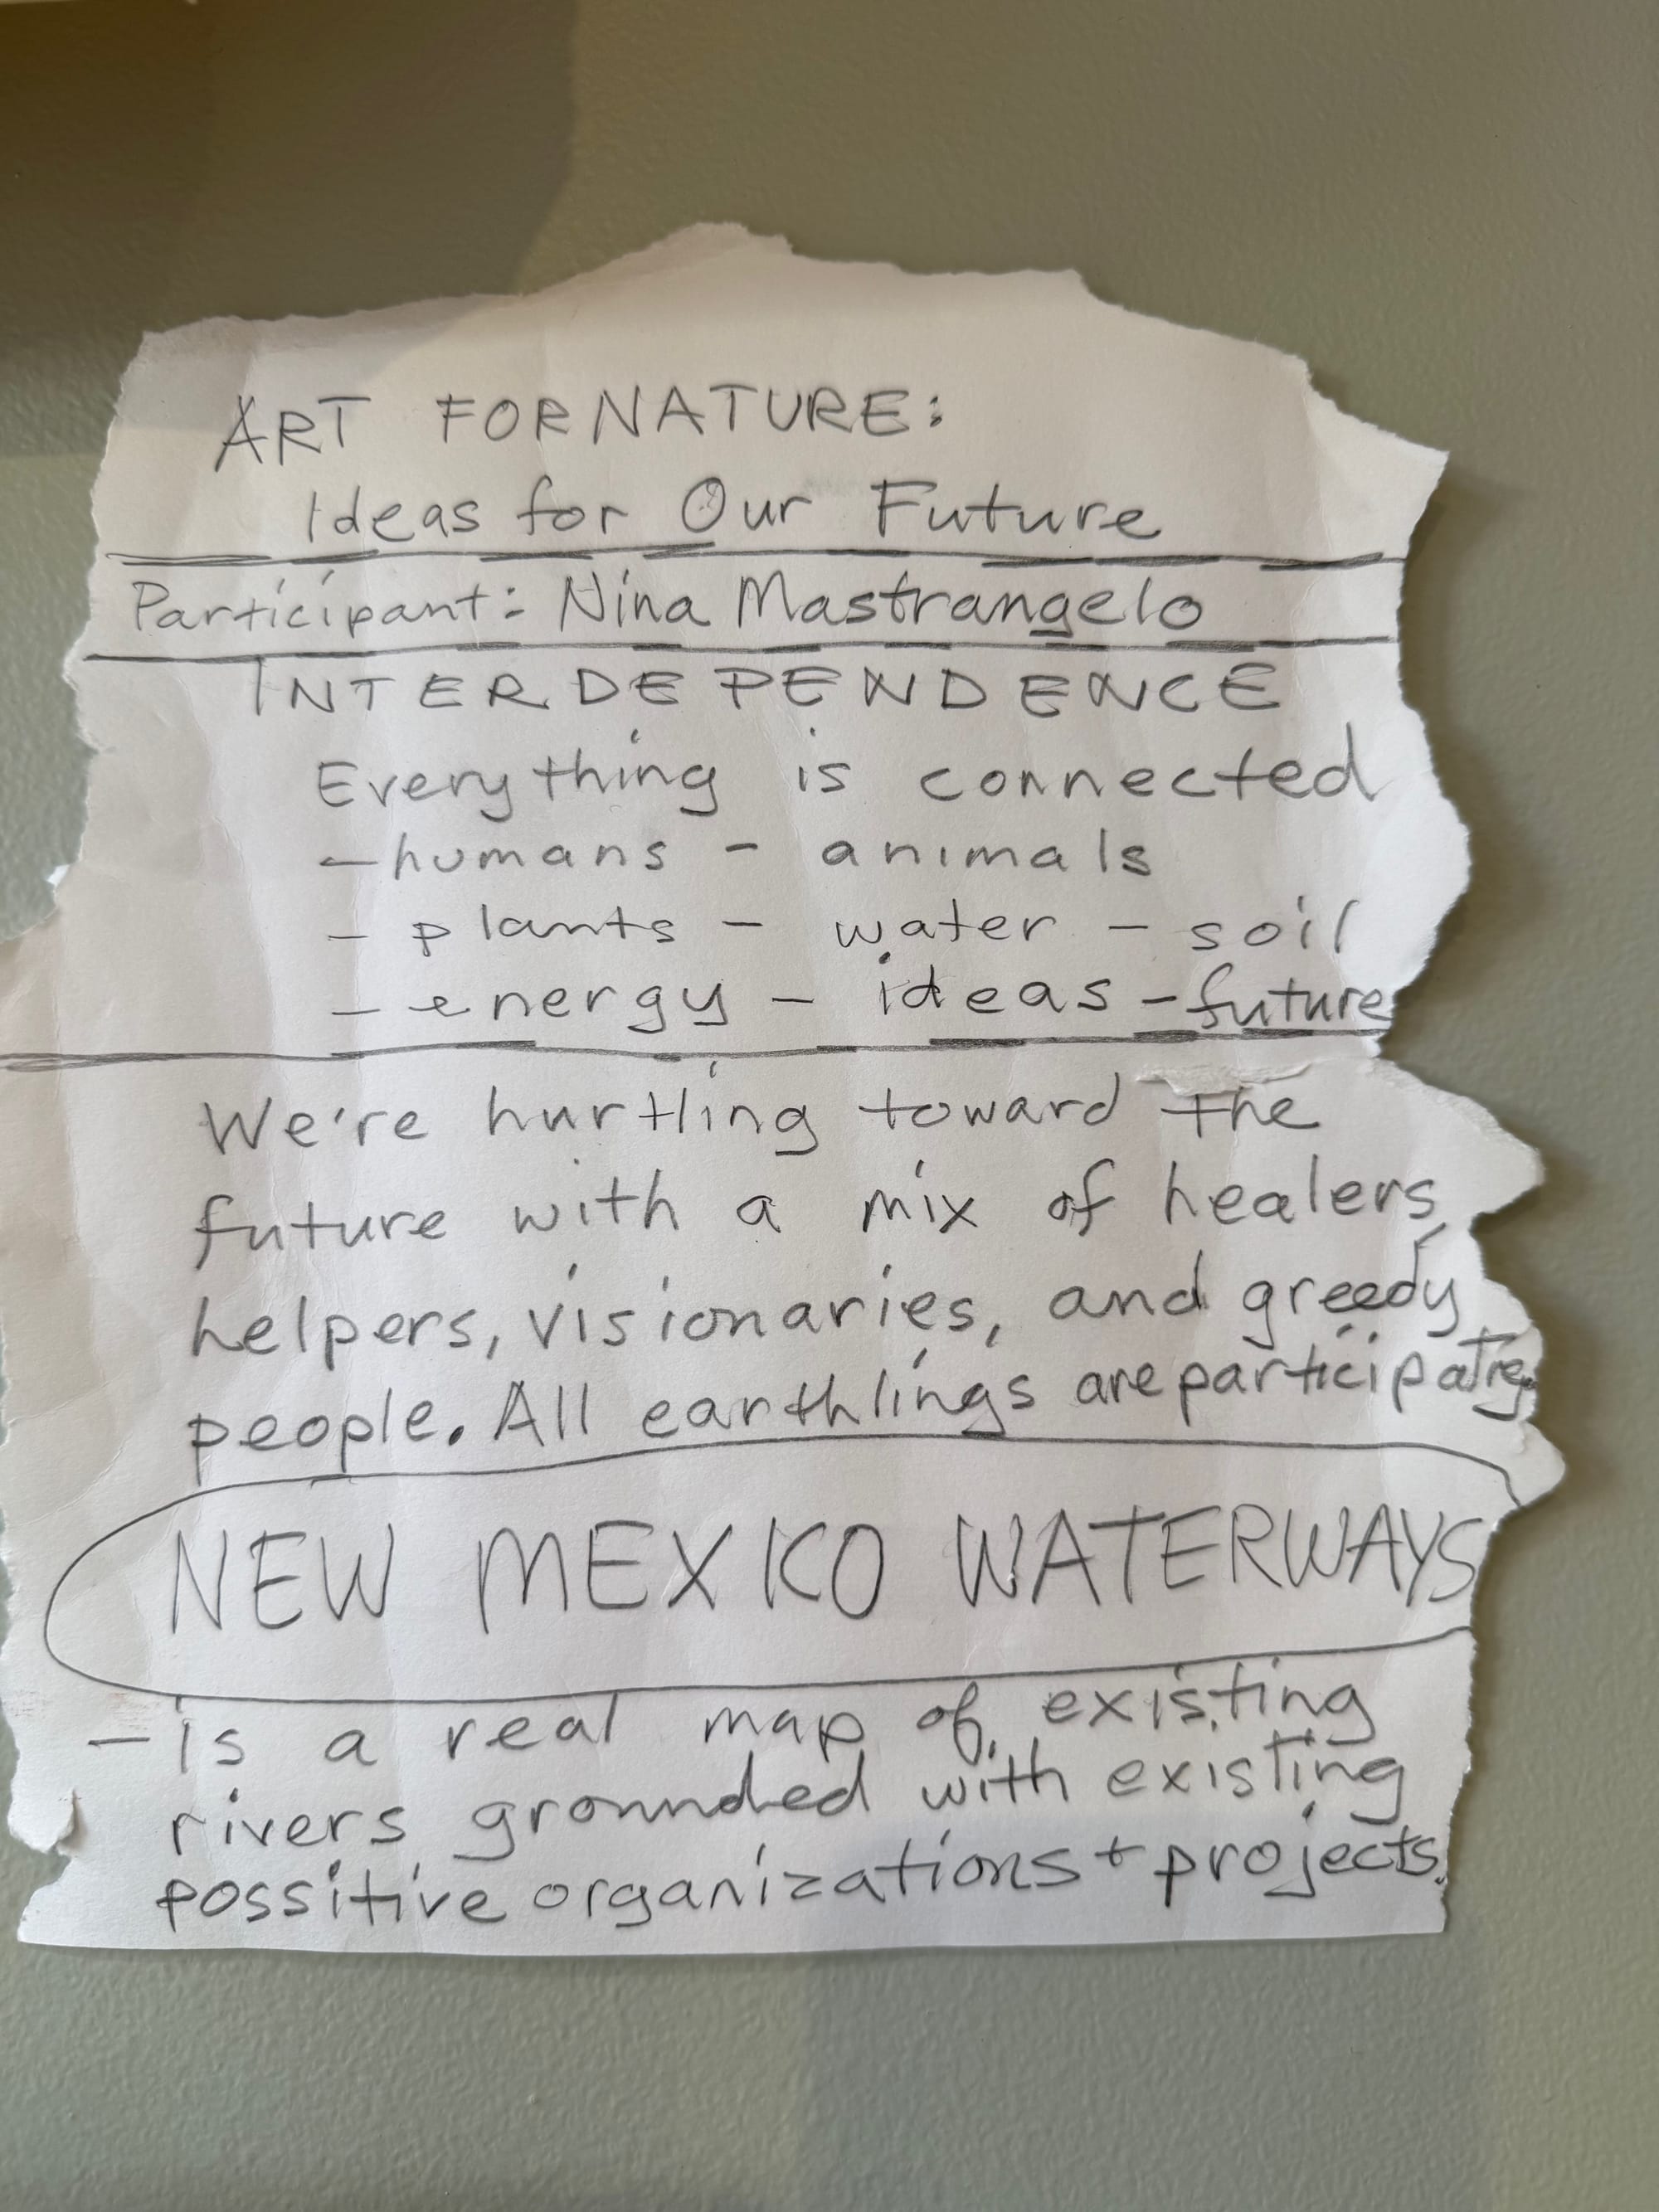 ART FOR NATURE:
Ideas for Our Future
Participant: Nina Mastrangelo
INTERDEPENDENCE
Everything is connected
- humans - animals
- plants - water - soil
- energy - ideas - future
We're hurtling toward the
future with a mix of healers,
helpers, visionaries, and greedy
people. All earthlings are participating.
NEW MEXICO WATERWAYS
- is a real map of existing
rivers grounded with existing
possitive organizations + projects.